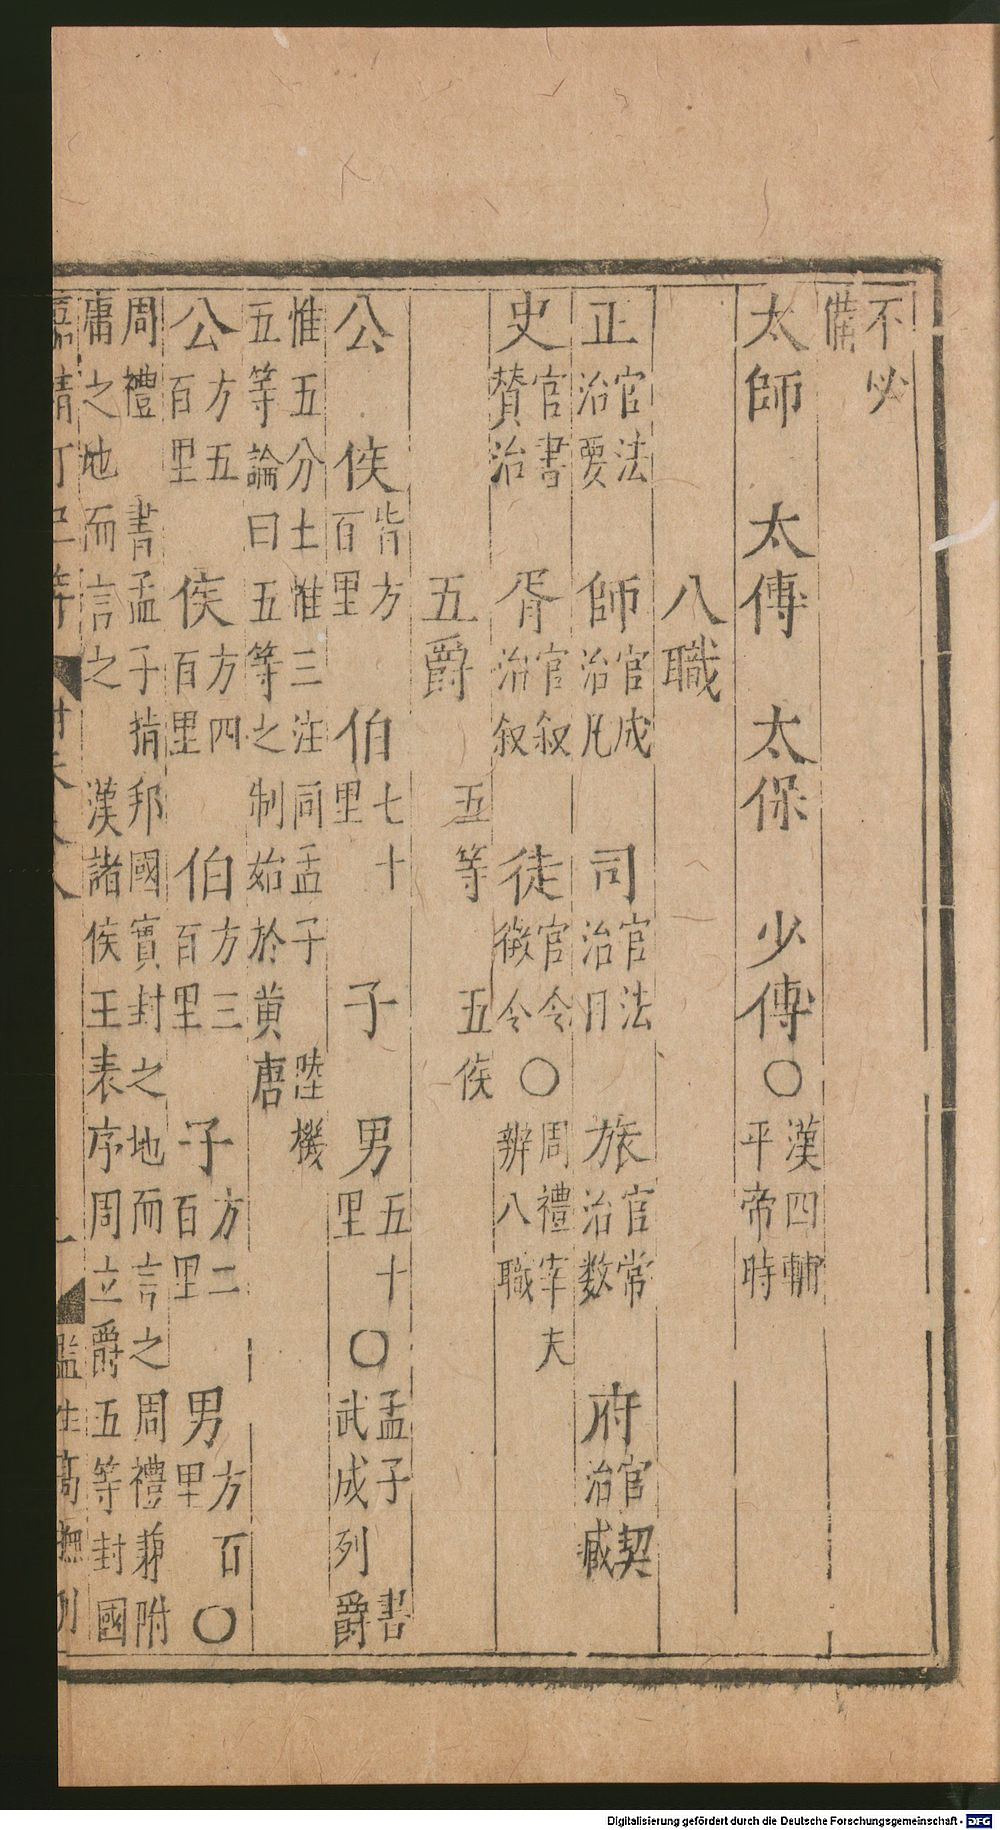 不必
備
太師　太傅　太保　少傅○漢四輔
平帝時
八職
正官法治要　師官成治凡　司官法治目　旅官常治數　府官契治藏
史官書贊治　胥官叙治叙　徒官令徵令○周禮宰夫
辨八職
五爵　五等　五侯
公　侯皆方百里　伯七十里　子　男五十里○孟子　書武成列爵
惟五分土惟三注同孟子　陸機
五等論曰五等之制始於黄唐
公方五百里　侯方四百里　伯方三百里　子方二百里　男方百里○
周禮　書孟子指邦國實封之地而言之周禮兼附
庸之地而言之　漢諸侯王表序周立爵五等封國
Digitalisierung gefördert durch die Deutsche Forschungsgemeinschaft - DFG